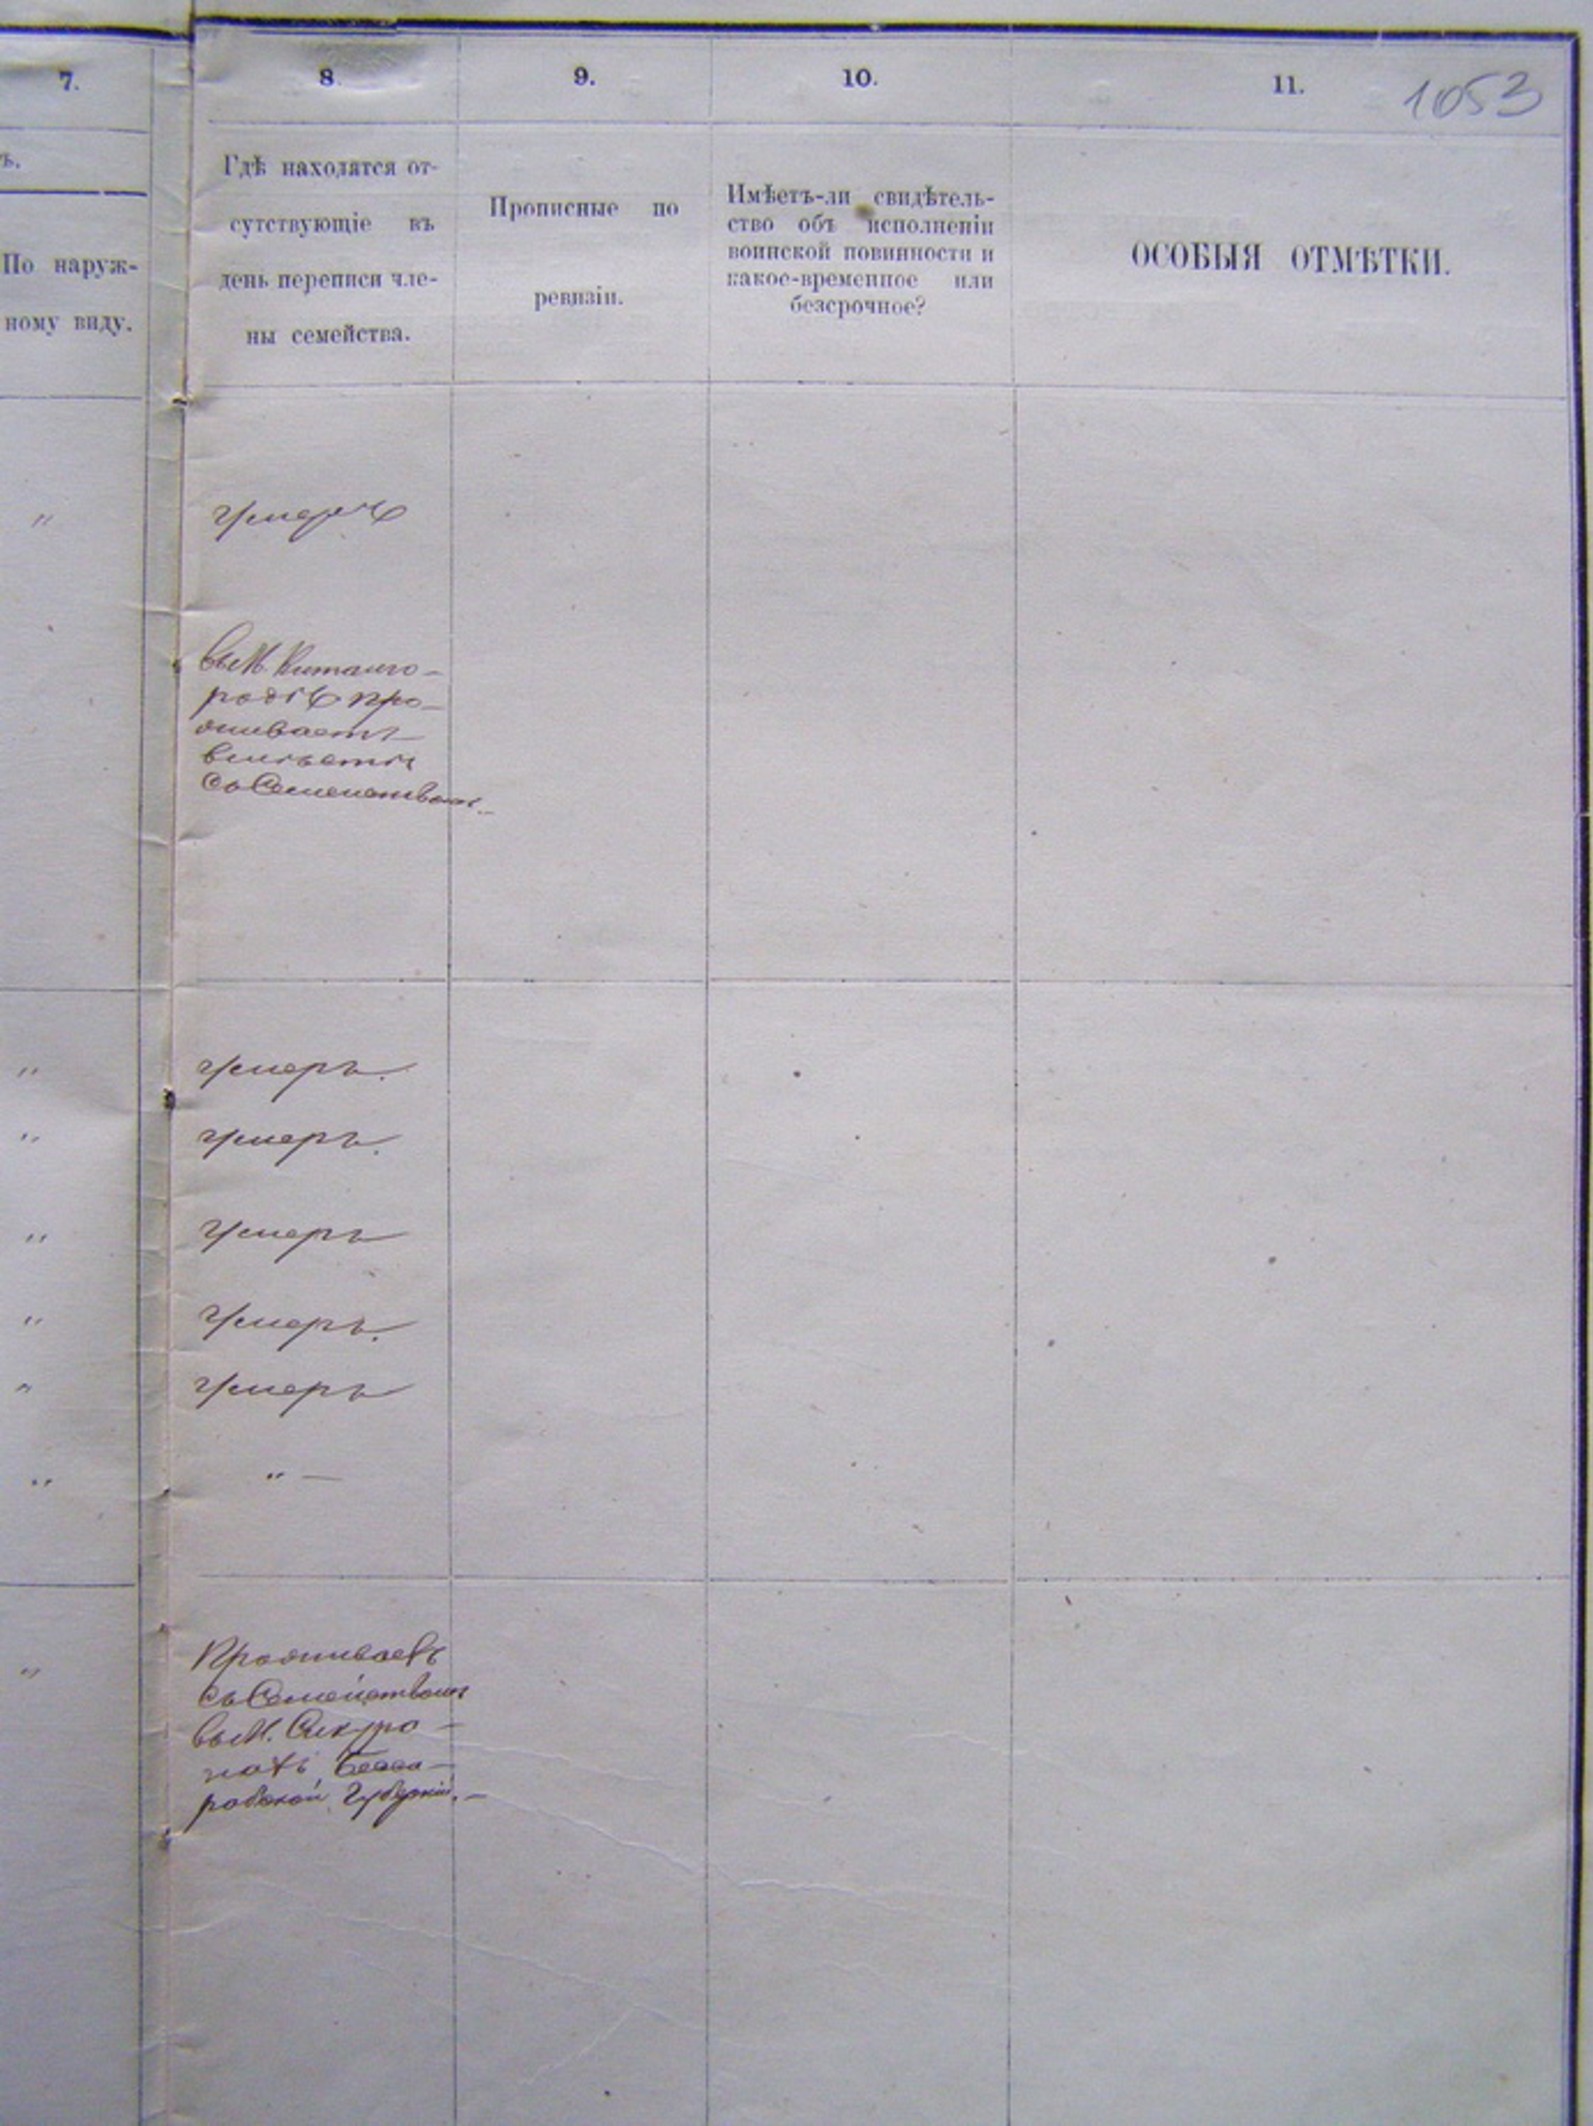 7.
8
9.
10.
11.
1053
ъ.
По наруж-
ному виду.
Гдѣ находятся от-
сутствующіе въ
день переписи чле-
ны семейства.
Прописные по
ревизіи.
Имѣетъ-ли свидѣтель-
ство объ исполненіи
воинской повинности и
какое-временное или
безсрочное?
ОСОБЫЯ ОТМѢТКИ.
"
умеръ
въ М. Китайго-
родѣ про-
живаетъ
вмѣстѣ
съ Семействомъ.
" умеръ.
" умеръ.
" умеръ
" умеръ.
" умеръ
" " —
"
Проживаетъ
съ Семействомъ
въ М. Секуро-
нахъ Бесса-
рабской Губерніи.